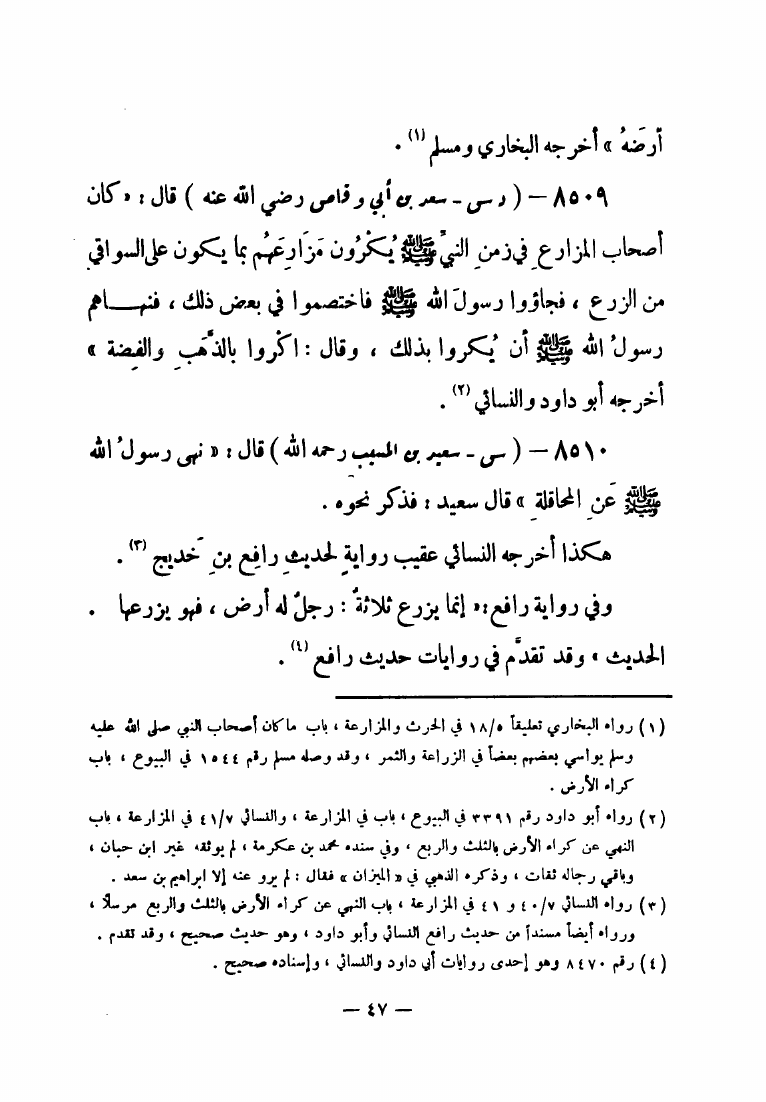 أرضَهُ » أخرجه البخاري ومسلم (١) .
٨٥٠٩ – ( د س - سعد بن أبي وقاص رضي الله عنه ) قال : « كان
أصحاب المزارعِ في زمنِ النبيِّ ﷺ يُكْرُون مَزَارِعَهُم بما يكون على السواقي
من الزرع ، فجاؤوا رسولَ الله ﷺ فاختصموا في بعض ذلك ، فنهاهم
رسولُ الله ﷺ أن يُكروا بذلك ، وقال : اكْروا بالذَّهَبِ والفِضة »
أخرجه أبو داود والنسائي (٢) .
٨٥١٠ – ( س - سعيد بن المسيب رحمه الله ) قال : « نهى رسولُ الله
ﷺ عَنِ المحاقلةِ » قال سعيد : فذكر نحوه .
هكذا أخرجه النسائي عقيب روايةٍ لحديثِ رافِعِ بنِ خَديج (٣) .
وفي رواية رافع : « إنما يزرع ثلاثةٌ : رجلٌ له أرض ، فهو يزرعها .
الحديث » وقد تقدَّم في روايات حديث رافع (٤) .
(١) رواه البخاري تعليقاً ١٨/٥ في الحرث والمزارعة ، باب ما كان أصحاب النبي صلى الله عليه
وسلم يواسي بعضهم بعضاً في الزراعة والثمر ، وقد وصله مسلم رقم ١٥٤٤ في البيوع ، باب
كراء الأرض .
(٢) رواه أبو داود رقم ٣٣٩١ في البيوع ، باب في المزارعة ، والنسائي ٤١/٧ في المزارعة ، باب
النهي عن كراء الأرض بالثلث والربع ، وفي سنده محمد بن عكرمة ، لم يوثقه غير ابن حبان ،
وباقي رجاله ثقات ، وذكره الذهبي في « الميزان » فقال : لم يرو عنه إلا ابراهيم بن سعد .
(٣) رواه النسائي ٤٠/٧ و ٤١ في المزارعة ، باب النهي عن كراء الأرض بالثلث والربع مرسلاً ،
ورواه أيضاً مسنداً من حديث رافع النسائي وأبو داود ، وهو حديث صحيح ، وقد تقدم .
(٤) رقم ٨٤٧٠ وهو إحدى روايات أبي داود والنسائي ، وإسناده صحيح .
– ٤٧ –